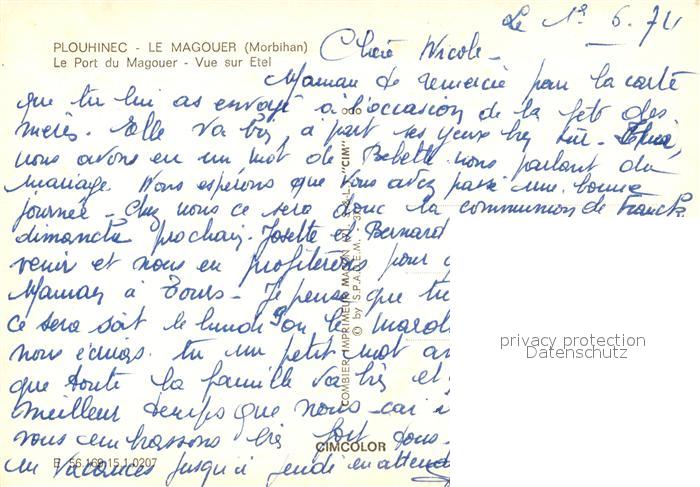 Le 1er 6.74
PLOUHINEC - LE MAGOUER (Morbihan)
Le Port du Magouer - Vue sur Etel
Chère Nicole -
Maman te remercie pour la carte
que tu lui as envoyé à l'occasion de la fête des
mères. Elle va bien, à part ses yeux bien sûr -
nous avons eu un mot de Babette nous parlant du
mariage. Nous espérons que vous avez passé une bonne
journée - Chez nous ce sera donc la communion de Franck
dimanche prochain. Josette et Bernard
venir et nous en profiterons pour
Maman à Tours - Je pense que tu
ce sera soit le lundi ou le
nous écrirais tu un petit mot
que toute la famille va bien et
meilleur temps que nous - car
vous embrassons bien fort tous -
en vacances jusqu'à jeudi en attend
COMBIER IMPRIMEUR MACON "CIM"
© by S.P.A.D.E.M.
CIMCOLOR
E 56.169.15.1.0207
privacy protection
Datenschutz